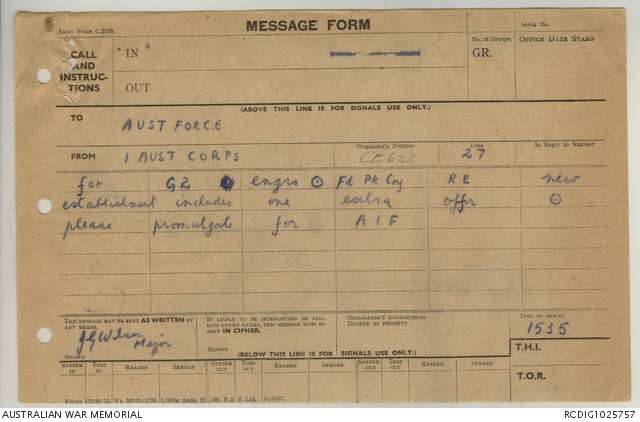 ARMY FORM C.2128.
MESSAGE FORM
Serial No.
CALL AND INSTRUC-TIONS
"IN"
OUT
No. of Groups.
GR.
OFFICE DATE STAMP
(ABOVE THIS LINE IS FOR SIGNALS USE ONLY.)
TO
AUST FORCE
FROM
1 AUST CORPS
Originator's Number
CE 623
Date
27
In Reply to Number
for G2 engrs ⊙ Fd Pk Coy RE new
establishment includes one extra offr ⊙
please promulgate for AIF
THIS MESSAGE MAY BE SENT AS WRITTEN BY ANY MEANS.
IF LIABLE TO BE INTERCEPTED OR FALL INTO ENEMY HANDS, THIS MESSAGE MUST BE SENT IN CIPHER.
ORIGINATOR'S INSTRUCTIONS
DEGREE OF PRIORITY.
TIME OF ORIGIN
1535
Major
SIGNED
SIGNED
(BELOW THIS LINE IS FOR SIGNALS USE ONLY.)
T.H.I.
SYSTEM IN
TIME IN
READER
SENDER
SYSTEM OUT
TIME OUT
READER
SENDER
SYSTEM OUT
TIME OUT
READER
SENDER
T.O.R.
AUSTRALIAN WAR MEMORIAL
RCDIG1025757